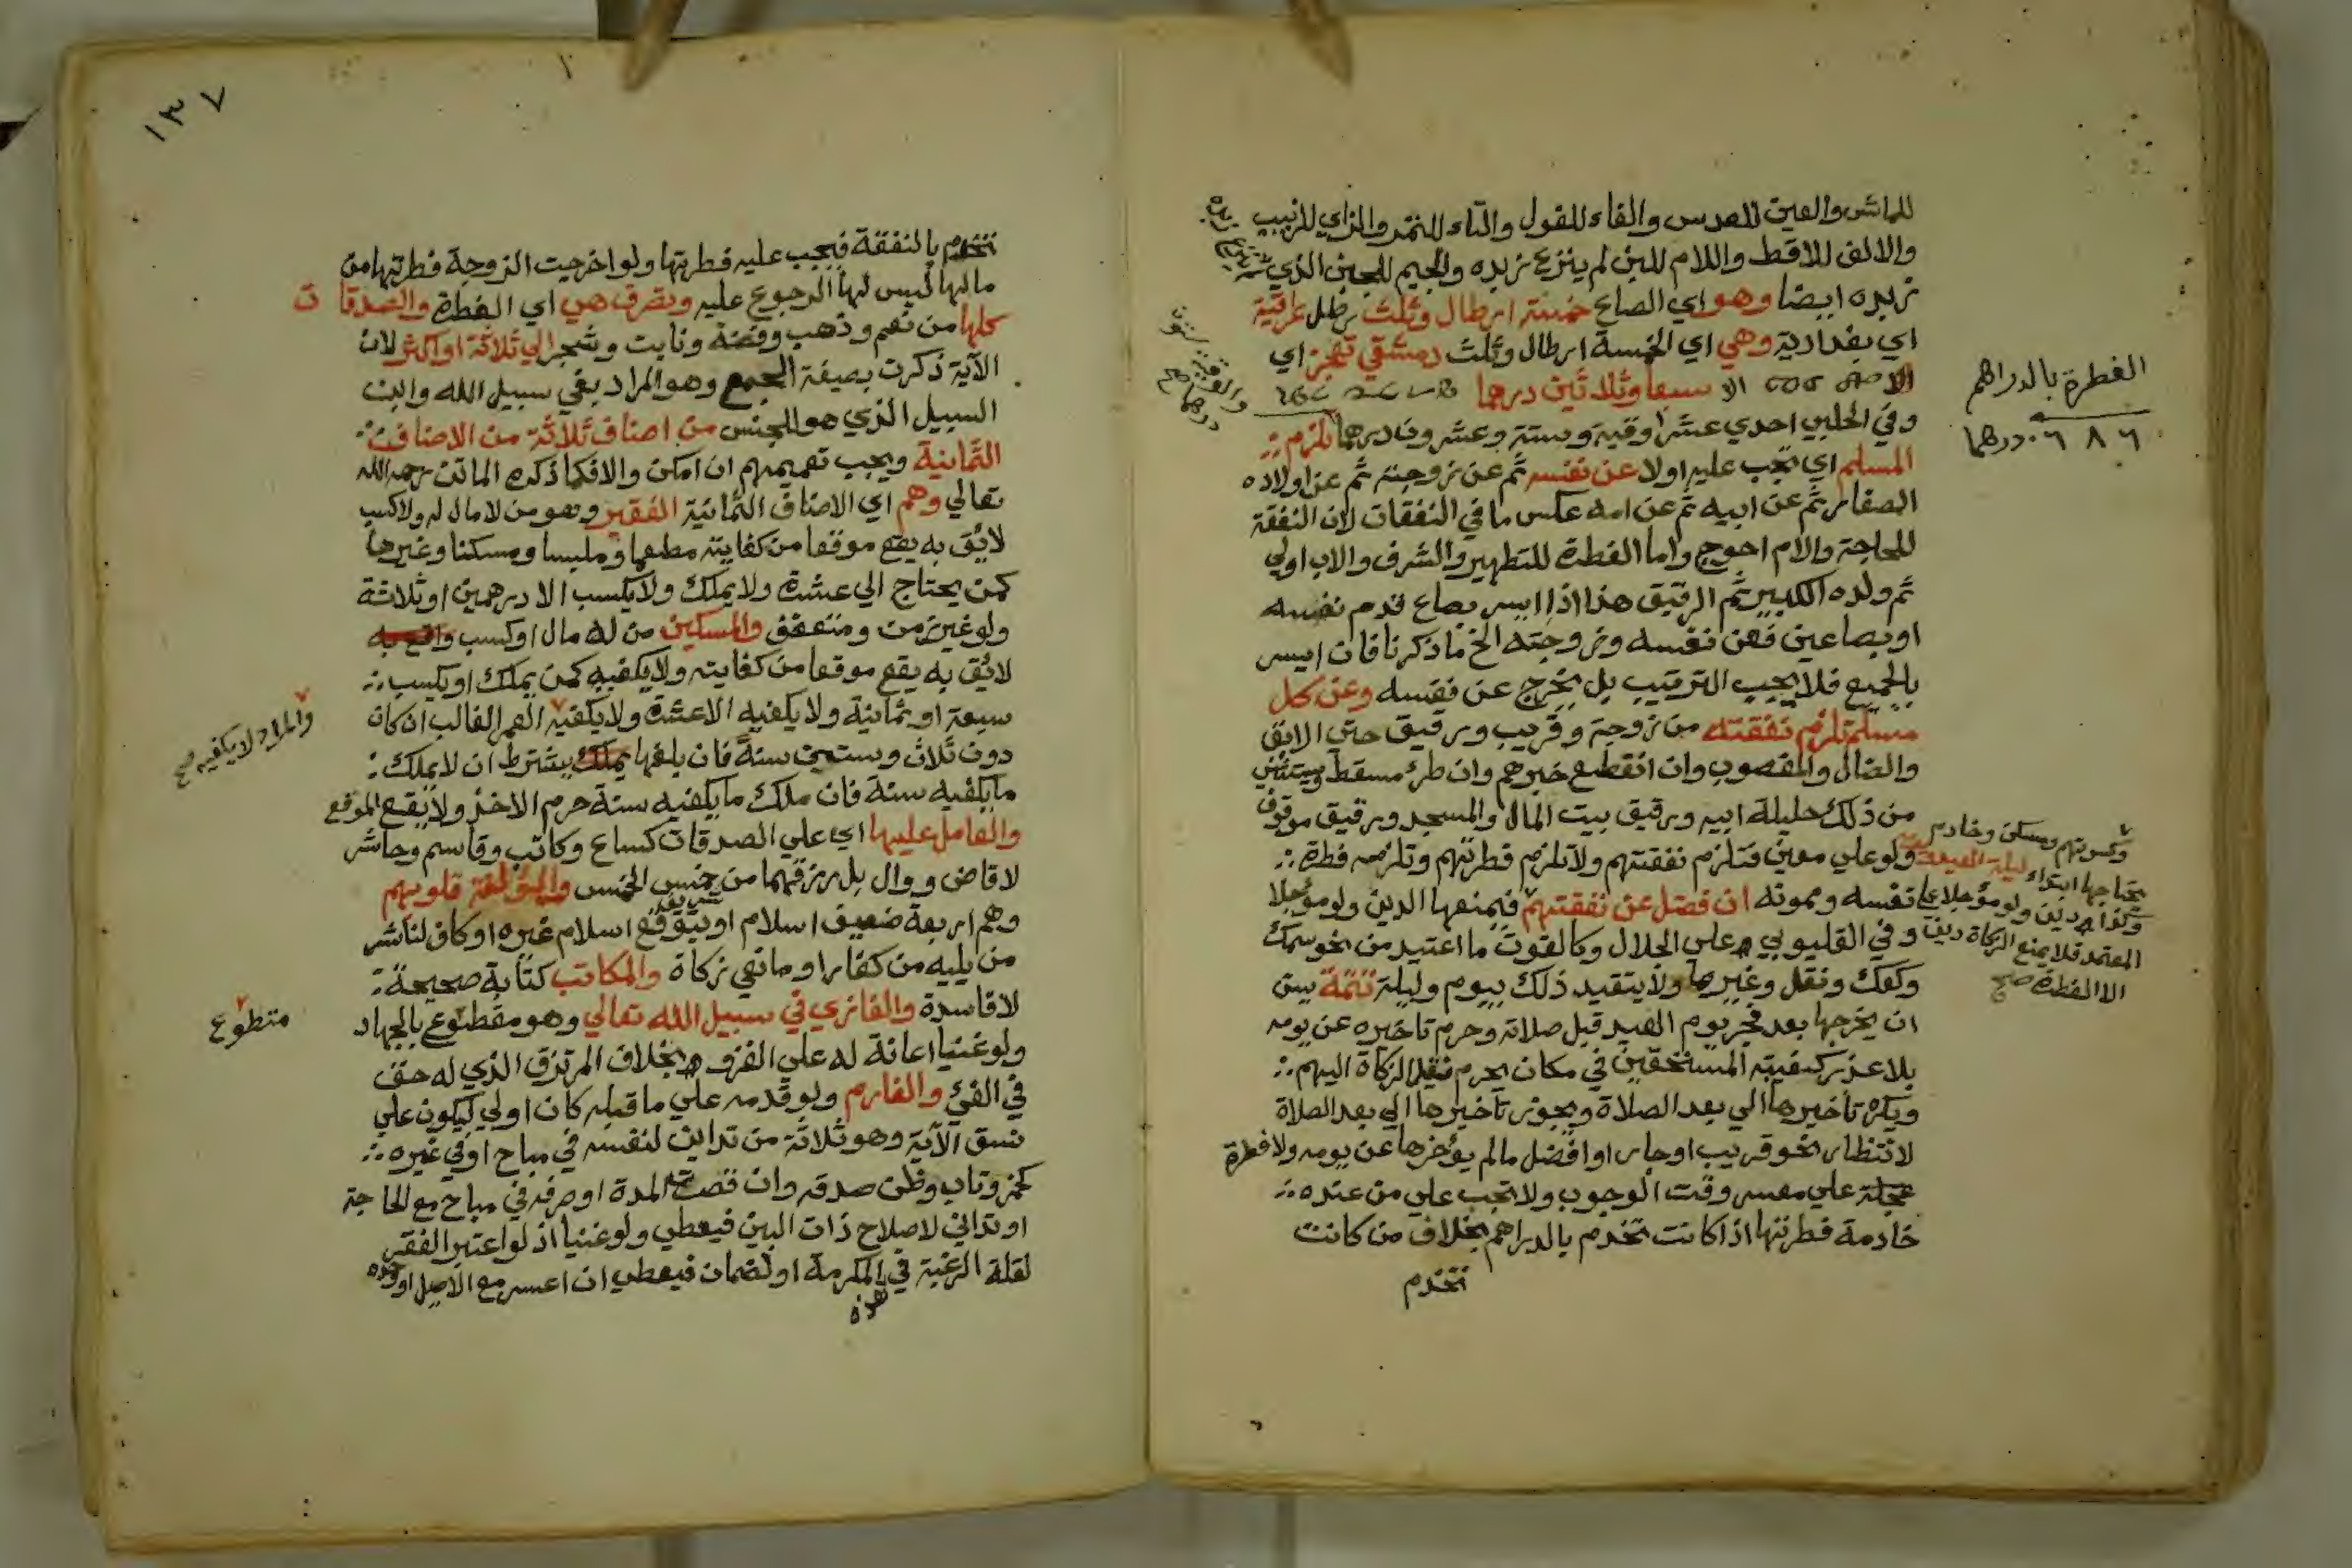 للماش والعين للعدس والفاء للفول والتاء للتمر والزاي للزبيب
والالف للاقط واللام للبن لم ينزع زبده والجيم للجبن الذي لم ينزع
زبده ايضا وهو اي الصاع خمسة ارطال وثلث رطل عراقية
اي بغدادية وهي اي الخمسة ارطال وثلث دمشقي تجز اي
الا سبعا وثلاثين درهما
وفي الحلبي احدي عشر اوقية وستة وعشرون درهما تلزم
المسلم اي تجب عليه اولا عن نفسه ثم عن زوجته ثم عن اولاده
الصغار ثم عن ابيه ثم عن امه عكس ما في النفقات لان النفقة
للحاجة والام احوج واما الفطرة للتطهير والشرف والاب اولي
ثم ولده الكبير ثم الرقيق هذا اذا ايسر بصاع قدم نفسه
او بصاعين فعن نفسه وزوجته الخ ما ذكرنا فان ايسر
بالجميع فلا يجب الترتيب بل يخرج عن نفسه وعن كل
مسلم تلزم نفقته من زوجة وقريب ورقيق حتى الابق
والضال والمغصوب وان انقطع خبرهم وان طرئ مسقط ويستثني
من ذلك حليلة ابيه ورقيق بيت المال والمسجد ورقيق موقوف
ولو علي معين فتلزم نفقتهم ولا تلزم فطرتهم وتلزمه فطرة
نفسه وممونه ان فضل عن نفقتهم فيمنعها الدين ولو مؤجلا
وفي القليوبي علي الجلال وكالقوت ما اعتيد من نحو سمك
وكعك ونقل وغيرها ولا يتقيد ذلك بيوم وليلة تتمة يسن
ان يخرجها بعد فجر يوم العيد قبل صلاته وحرم تاخيره عن يومه
بلا عذر كغيبة المستحقين في مكان يحرم نقل الزكاة اليهم
ويكره تاخيرها الي بعد الصلاة ويجوز تاخيرها الي بعد الصلاة
لانتظار نحو قريب او جار او افضل مالم يؤخرها عن يومه ولا فطرة
علي معسر وقت الوجوب ولا تجب علي من عنده
خادمة فطرتها اذا كانت تخدم بالدراهم بخلاف من كانت
تخدم
الفطرة بالدراهم
٦٨٦ درهما
وكسوتهم ومسكن وخادم
يحتاجها ابتداء ليلة العيد
وكذا دين ولو مؤجلا علي
المعتمد فلا يمنع الزكاة دين
الا الفطرة صح
١٣٧
تخدم بالنفقة فيجب عليه فطرتها ولو اخرجت الزوجة فطرتها من
مالها ليس لها الرجوع عليه وتصرف هي اي الفطرة والصدقات
كلها من نعم وذهب وفضة ونابت وشجر الي ثلاثة او اكثر لان
الآية ذكرت بصيغة الجمع وهو المراد بفي سبيل الله وابن
السبيل الذي هو للجنس من اصناف ثلاثة من الاصناف
الثمانية ويجب تعميمهم ان امكن والا فكما ذكره الماتن رحمه الله
تعالي وهم اي الاصناف الثمانية الفقير وهو من لا مال له ولا كسب
لائق به يقع موقعا من كفايته مطعما وملبسا ومسكنا وغيرها
كمن يحتاج الي عشرة ولا يملك ولا يكسب الا درهمين او ثلاثة
ولو غير زمن ومتعفف والمسكين من له مال او كسب
لائق به يقع موقعا من كفايته ولا يكفيه كمن يملك او يكسب
سبعة او ثمانية ولا يكفيه الا عشرة ولا يكفيه العمر الغالب ان كان
دون ثلاث وستين سنة فان بلغها يشترط ان لا يملك
ما يكفيه سنة فان ملك ما يكفيه سنة حرم الاخذ ولا يقع الموقع
والعامل عليها اي علي الصدقات كساع وكاتب وقاسم وحاشر
لا قاض ووال بل رزقهما من خمس الخمس والمؤلفة قلوبهم
وهم اربعة ضعيف اسلام او شريف يتوقع اسلام غيره او كاف لنا شر
من يليه من كفار او مانعي زكاة والمكاتب كتابة صحيحة
لا فاسدة والغازي في سبيل الله تعالي وهو متطوع بالجهاد
ولو غنيا اعانة له علي الغزو بخلاف المرتزق الذي له حق
في الفئ والغارم ولو قدمه علي ما قبله كان اولي ليكون علي
نسق الآية وهو ثلاثة من تداين لنفسه في مباح او في غيره
كخمر وتاب وظن صدقه وان قصرت المدة او صرفه في مباح مع الحاجة
او تداين لاصلاح ذات البين فيعطي ولو غنيا اذ لو اعتبر الفقر
لقلة الرغبة في المكرمة او لضمان فيعطي ان اعسر مع الاصل او وحده
هذه
والمراد لا يكفيه صح
متطوع